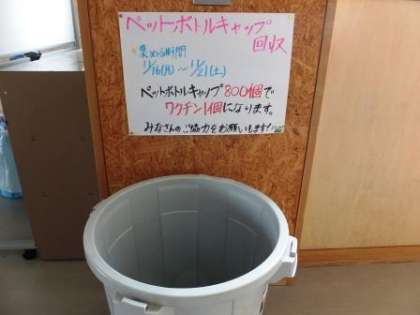 ペットボトルキャップ
回収
集める時間
11/16(月)～11/21(土)
ペットボトルキャップ800個で
ワクチン1個になります。
みなさんのご協力をお願いします!